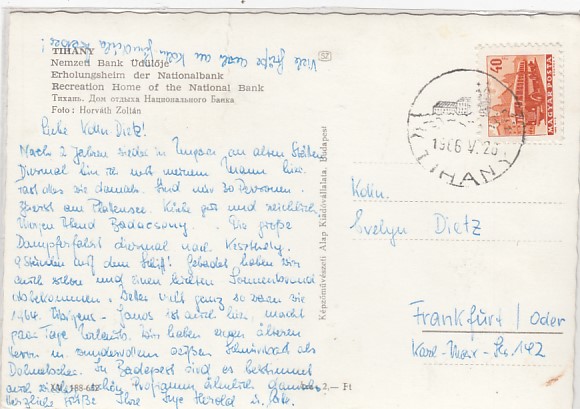 Viele Grüße auch an Koln.
TIHANY
Nemzeti Bank Üdülője
Erholungsheim der Nationalbank
Recreation Home of the National Bank
Тихань. Дом отдыха Национального Банка
Foto: Horváth Zoltán
Liebe Kolln Dietz!
Nach 2 Jahren wieder in Ungarn an alten Stätten
Diesmal bin ich mit meinem Mann hier
fast alles wie damals. Sind nur 30 Personen.
direkt am Plattensee. Küche gut und reichlich
Morgen Abend Badacsony. Die große
Dampferfahrt diesmal nach Keszthely.
9 Stunden auf dem Schiff! Gebadet haben wir
auch schon und einen leichten Sonnenbrand
abbekommen. Wetter nicht ganz so warm wie
1964. Übrigens Janos ist auch hier, macht
paar Tage Urlaub. Wir haben einen älteren
Herrn m. wunderschönem weißen Schnurrbart als
Dolmetscher. In Budapest wird es bestimmt
auch wieder schön. Programm ähnlich damals
Herzliche Grüße Ihre Inge Herold u.
XM 188-662
Ára: 2,— Ft
Képzőművészeti Alap Kiadóvállalata, Budapest
40
MAGYAR POSTA
1966 V. 26
TIHANY
Kolln.
Evelyn Dietz
Frankfurt/Oder
Karl-Marx-Str. 142